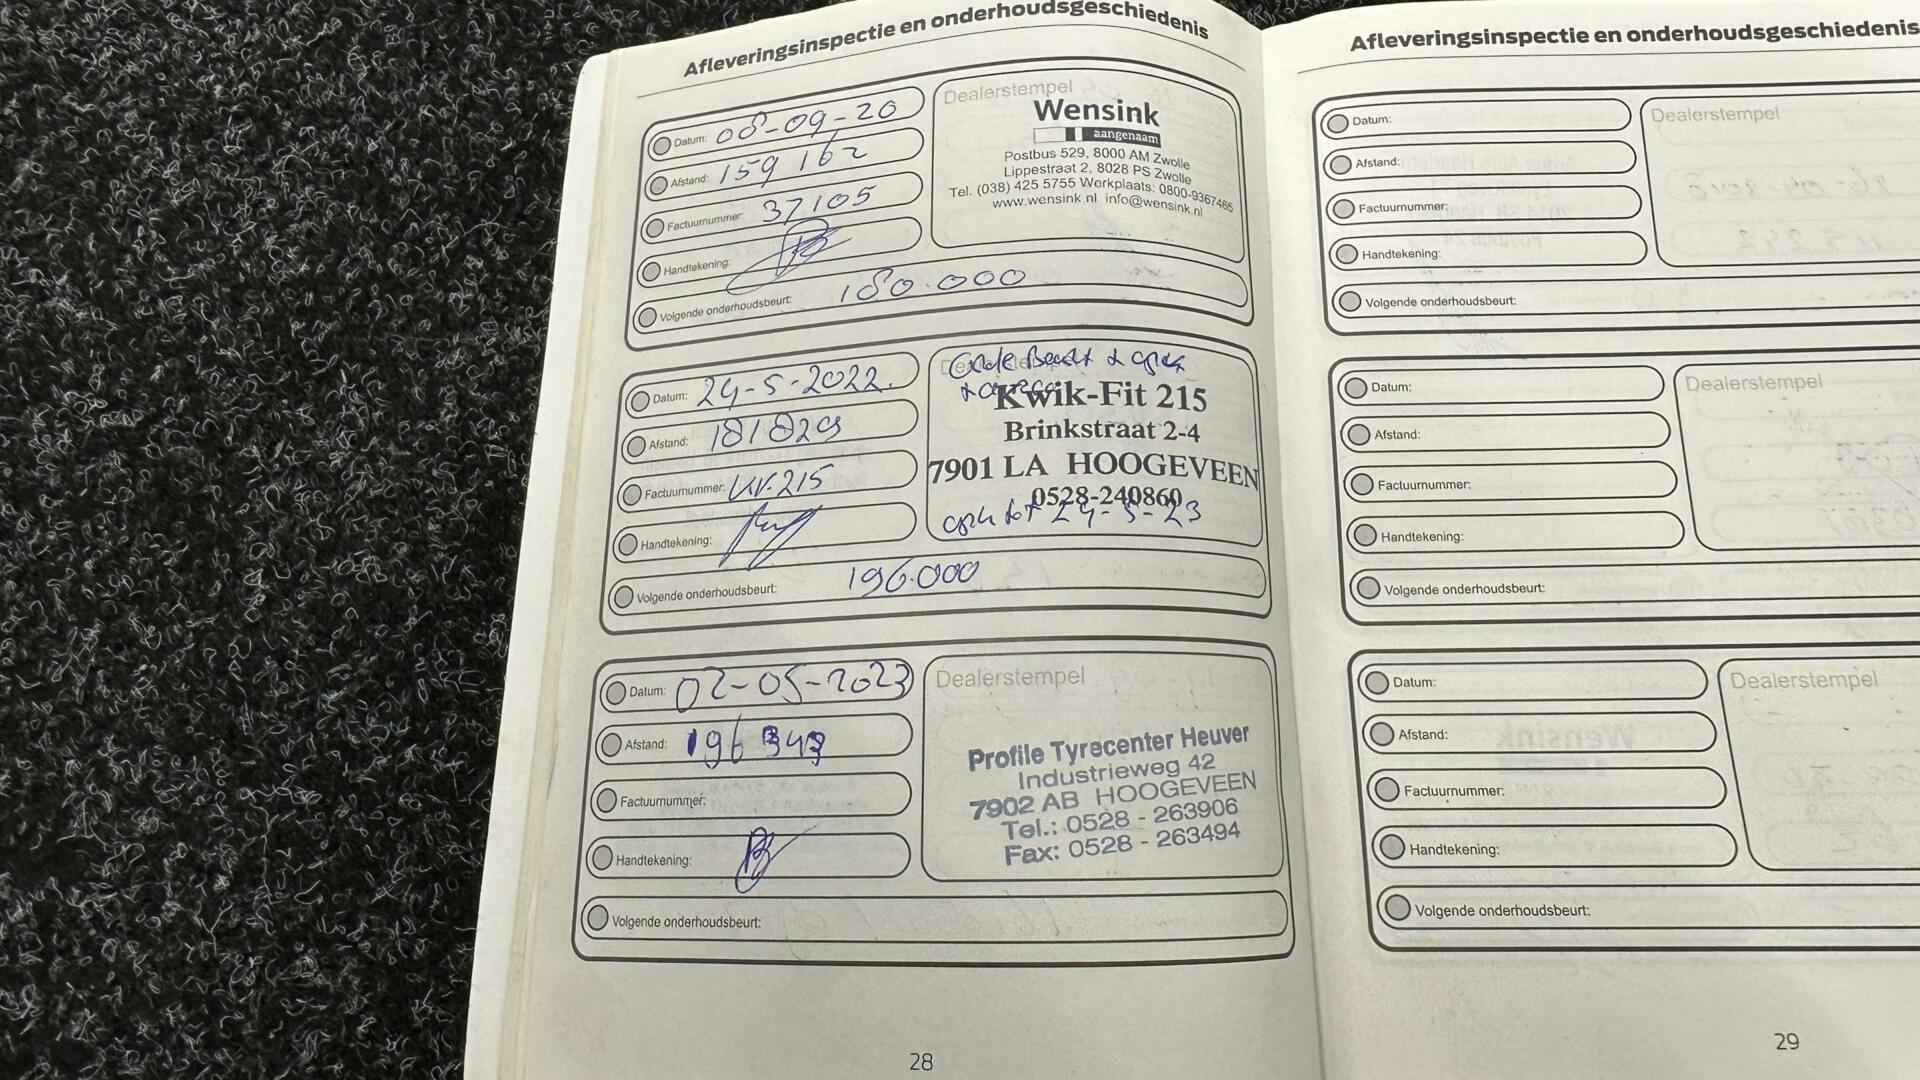 Afleveringsinspectie en onderhoudsgeschiedenis
Datum: 08-09-20
Afstand: 159 162
Factuurnummer: 37105
Handtekening:
Volgende onderhoudsbeurt: 180.000
Dealerstempel
Wensink
aangenaam
Postbus 529, 8000 AM Zwolle
Lippestraat 2, 8028 PS Zwolle
Tel. (038) 425 5755 Werkplaats: 0800-9367465
www.wensink.nl info@wensink.nl
Datum: 24-5-2022.
Afstand: 181829
Factuurnummer: 215
Handtekening:
Volgende onderhoudsbeurt: 196.000
Kwik-Fit 215
Brinkstraat 2-4
7901 LA HOOGEVEEN
0528-240860
tot 24-5-23
Datum: 02-05-2023
Afstand: 196 343
Factuurnummer:
Handtekening:
Volgende onderhoudsbeurt:
Dealerstempel
Profile Tyrecenter Heuver
Industrieweg 42
7902 AB HOOGEVEEN
Tel.: 0528 - 263906
Fax: 0528 - 263494
28
Afleveringsinspectie en onderhoudsgeschiedenis
Datum:
Afstand:
Factuurnummer:
Handtekening:
Volgende onderhoudsbeurt:
Dealerstempel
Datum:
Afstand:
Factuurnummer:
Handtekening:
Volgende onderhoudsbeurt:
Dealerstempel
Datum:
Afstand:
Factuurnummer:
Handtekening:
Volgende onderhoudsbeurt:
Dealerstempel
29